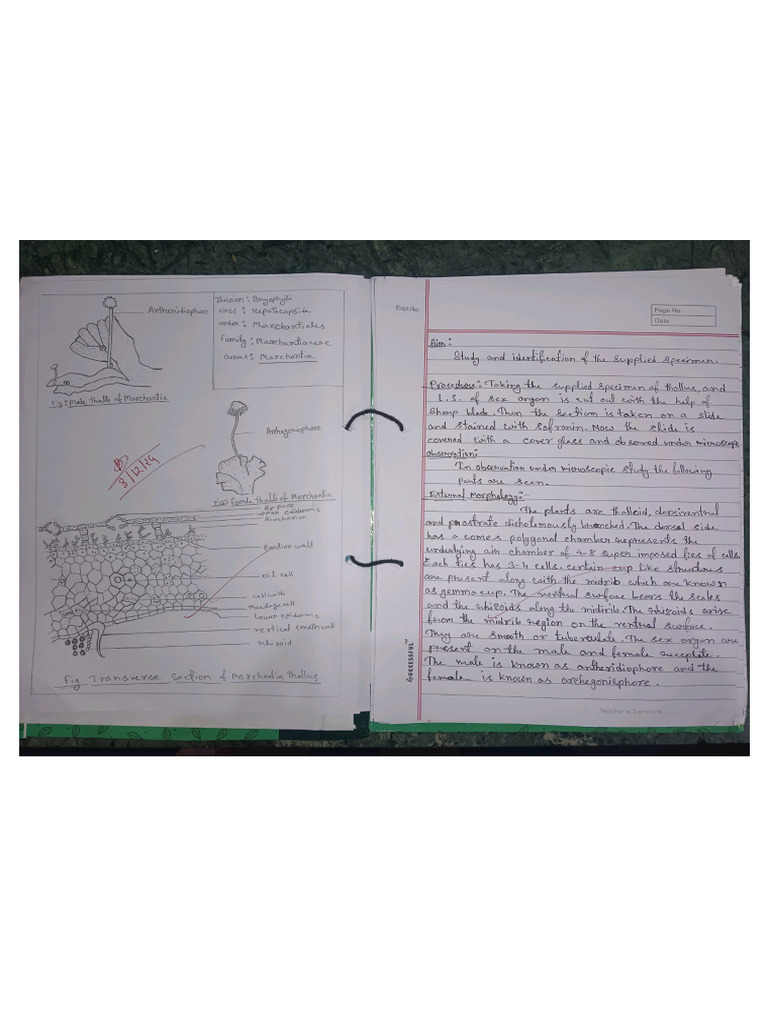 Antheridiophore
Division: Bryophyta
class: Hepaticopsida
order: Marchantiales
Family: Marchantiaceae
Genus: Marchantia
Fig: Male thalli of Marchantia
Archegoniophore
3/12/24
Fig: Female thalli of Marchantia
Air pore
upper epidermis
Air chamber
Partion wall
oil cell
cell with
Mucilage cell
Lower epidermis
vertical small wall
rhizoid
Fig Transverse Section of Marchantia thallus
Expt.No.
Page No.
Date.
Aim:
Study and identification of the supplied specimen.
Procedure: Taking the supplied specimen of thallus, and
L.S. of sex organ is cut out with the help of
sharp blade. Then the section is taken on a slide
and stained with safranin. Now the slide is
covered with a cover glass and observed under microscope
observation:
In observation under microscopic study the following
parts are seen.
External Morphology:
The plants are thalloid, dorsiventral
and prostrate dichotomously branched. The dorsal side
has a comes polygonal chamber represents the
underlying air chamber of 4-8 super imposed ties of cells.
Each ties has 3-4 cells. certain cup like structures
are present along with the midrib which are known
as gemma cup. The ventral surface bears the scales
and the rhizoids along the midrib. The rhizoids arise
from the midrib region on the ventral surface.
They are smooth or tuberculate. The sex organ are
present on the male and female receptate.
The male is known as antheridiophore and the
female is known as archegoniophore.
SUCCESSFUL
Teacher's Signature